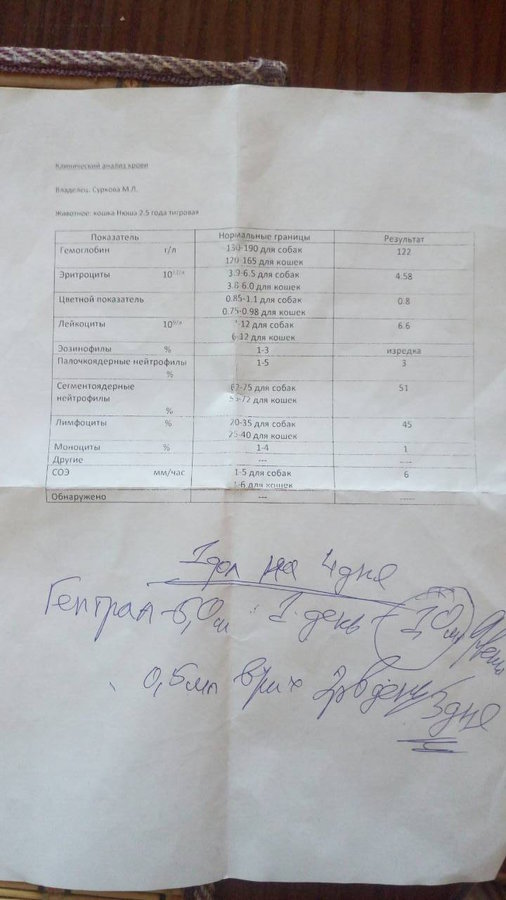 Клинический анализ крови
Владелец: Суркова М.Л.
Животное: кошка Нюша 2.5 года тигровая
Показатель Нормальные границы Результат
Гемоглобин г/л 130-190 для собак 122
120-165 для кошек
Эритроциты 10 3.9-6.5 для собак 4.58
3.8-6.0 для кошек
Цветной показатель 0.85-1.1 для собак 0.8
0.75-0.98 для кошек
Лейкоциты 10 -12 для собак 6.6
6-12 для кошек
Эозинофилы % 1-3 изредка
Палочкоядерные нейтрофилы 1-5 3
%
Сегментоядерные -75 для собак 51
нейтрофилы -72 для кошек
%
Лимфоциты % 20-35 для собак 45
25-40 для кошек
Моноциты % 1-4 1
Другие --- ---
СОЭ мм/час 1-5 для собак 6
1-6 для кошек
Обнаружено --- -----
на 4 дня
Гептрал 1 день
0,5мл 3 дня